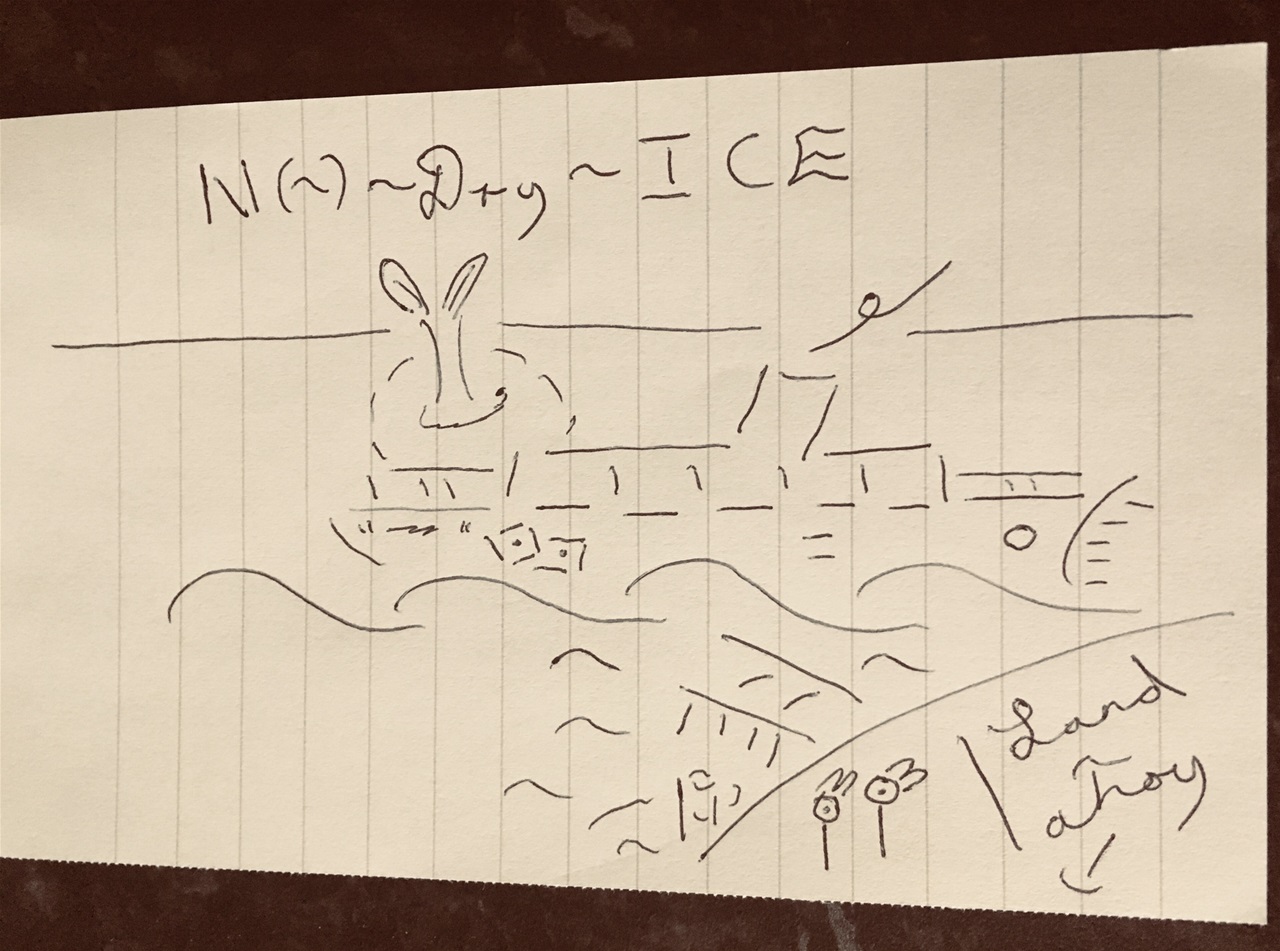 N(~) ~ Dry ~ ICE
Land
ahoy